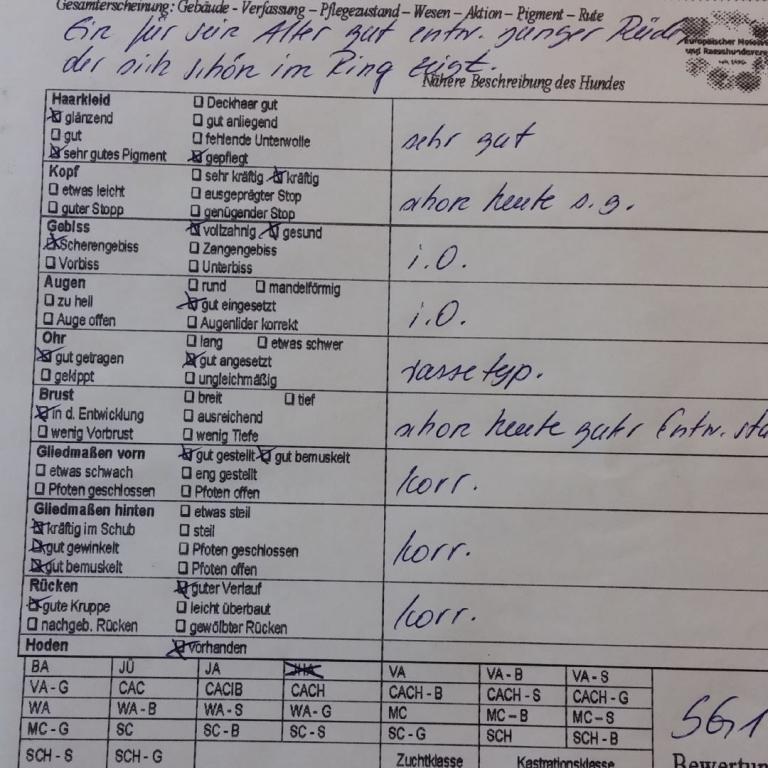 Gesamterscheinung: Gebäude - Verfassung – Pflegezustand – Wesen – Aktion – Pigment – Rute
Ein für sein Alter gut entw. junger Rüde
der sich schön im Ring zeigt.
Nähere Beschreibung des Hundes
Haarkleid Deckhaar gut
glänzend gut anliegend
gut fehlende Unterwolle
sehr gutes Pigment gepflegt
sehr gut
Kopf sehr kräftig kräftig
etwas leicht ausgeprägter Stop
guter Stopp genügender Stop
schon heute s.g.
Gebiss vollzahnig gesund
Scherengebiss Zangengebiss
Vorbiss Unterbiss
i.O.
Augen rund mandelförmig
zu hell gut eingesetzt
Auge offen Augenlider korrekt
i.O.
Ohr lang etwas schwer
gut getragen gut angesetzt
gekippt ungleichmäßig
rassetyp.
Brust breit tief
in d. Entwicklung ausreichend
wenig Vorbrust wenig Tiefe
schon heute guter Entw.
Gliedmaßen vorn gut gestellt gut bemuskelt
etwas schwach eng gestellt
Pfoten geschlossen Pfoten offen
korr.
Gliedmaßen hinten etwas steil
kräftig im Schub steil
gut gewinkelt Pfoten geschlossen
gut bemuskelt Pfoten offen
korr.
Rücken guter Verlauf
gute Kruppe leicht überbaut
nachgeb. Rücken gewölbter Rücken
korr.
Hoden vorhanden
BA JÜ JA VA VA - B VA - S
VA - G CAC CACIB CACH CACH - B CACH - S CACH - G
WA WA - B WA - S WA - G MC MC – B MC – S
MC - G SC SC - B SC - S SC - G SCH SCH - B
SCH - S SCH - G Zuchtklasse Kastrationsklasse
SG1
Bewertun